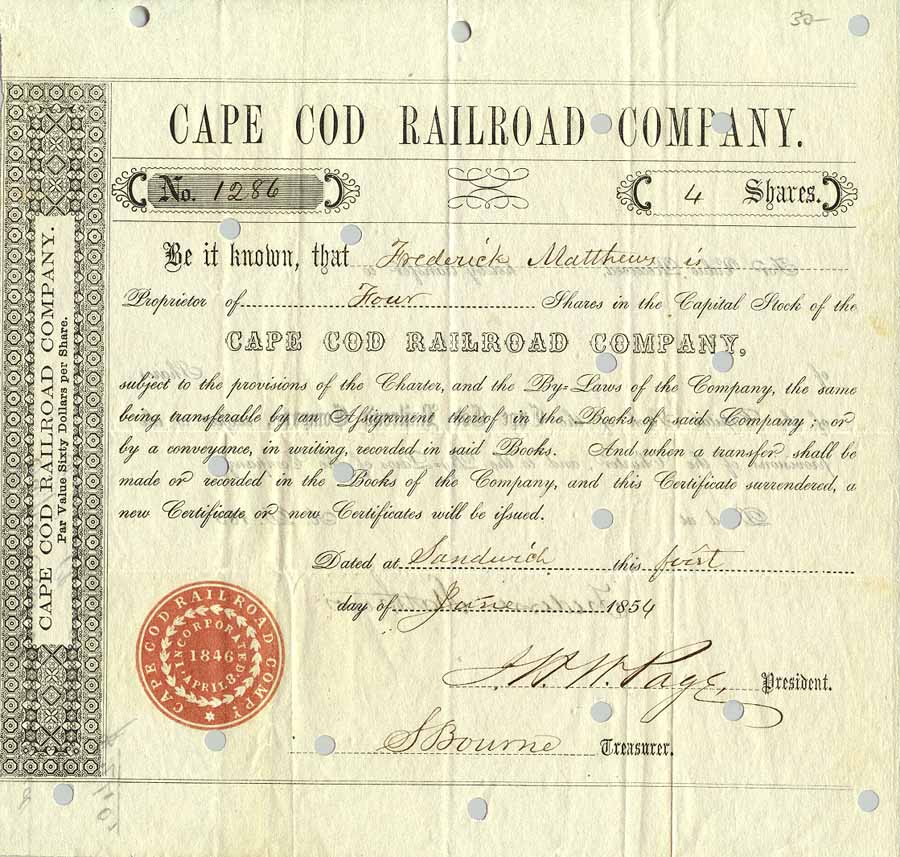 30-
CAPE COD RAILROAD COMPANY.
No. 1286
4 Shares.
Be it known, that Frederick Matthews is
Proprietor of Four Shares in the Capital Stock of the
CAPE COD RAILROAD COMPANY,
subject to the provisions of the Charter, and the By-Laws of the Company, the same
being transferable by an Assignment thereof in the Books of said Company; or
by a conveyance, in writing, recorded in said Books. And when a transfer shall be
made or recorded in the Books of the Company, and this Certificate surrendered, a
new Certificate or new Certificates will be issued.
Dated at Sandwich this first
day of June 1854
J. H. W. Page, President.
S Bourne Treasurer.
CAPE COD RAILROAD COMPANY.
Par Value Sixty Dollars per Share.
CAPE COD RAILROAD COMPY
INCORPORATED
1846
APRIL 3.